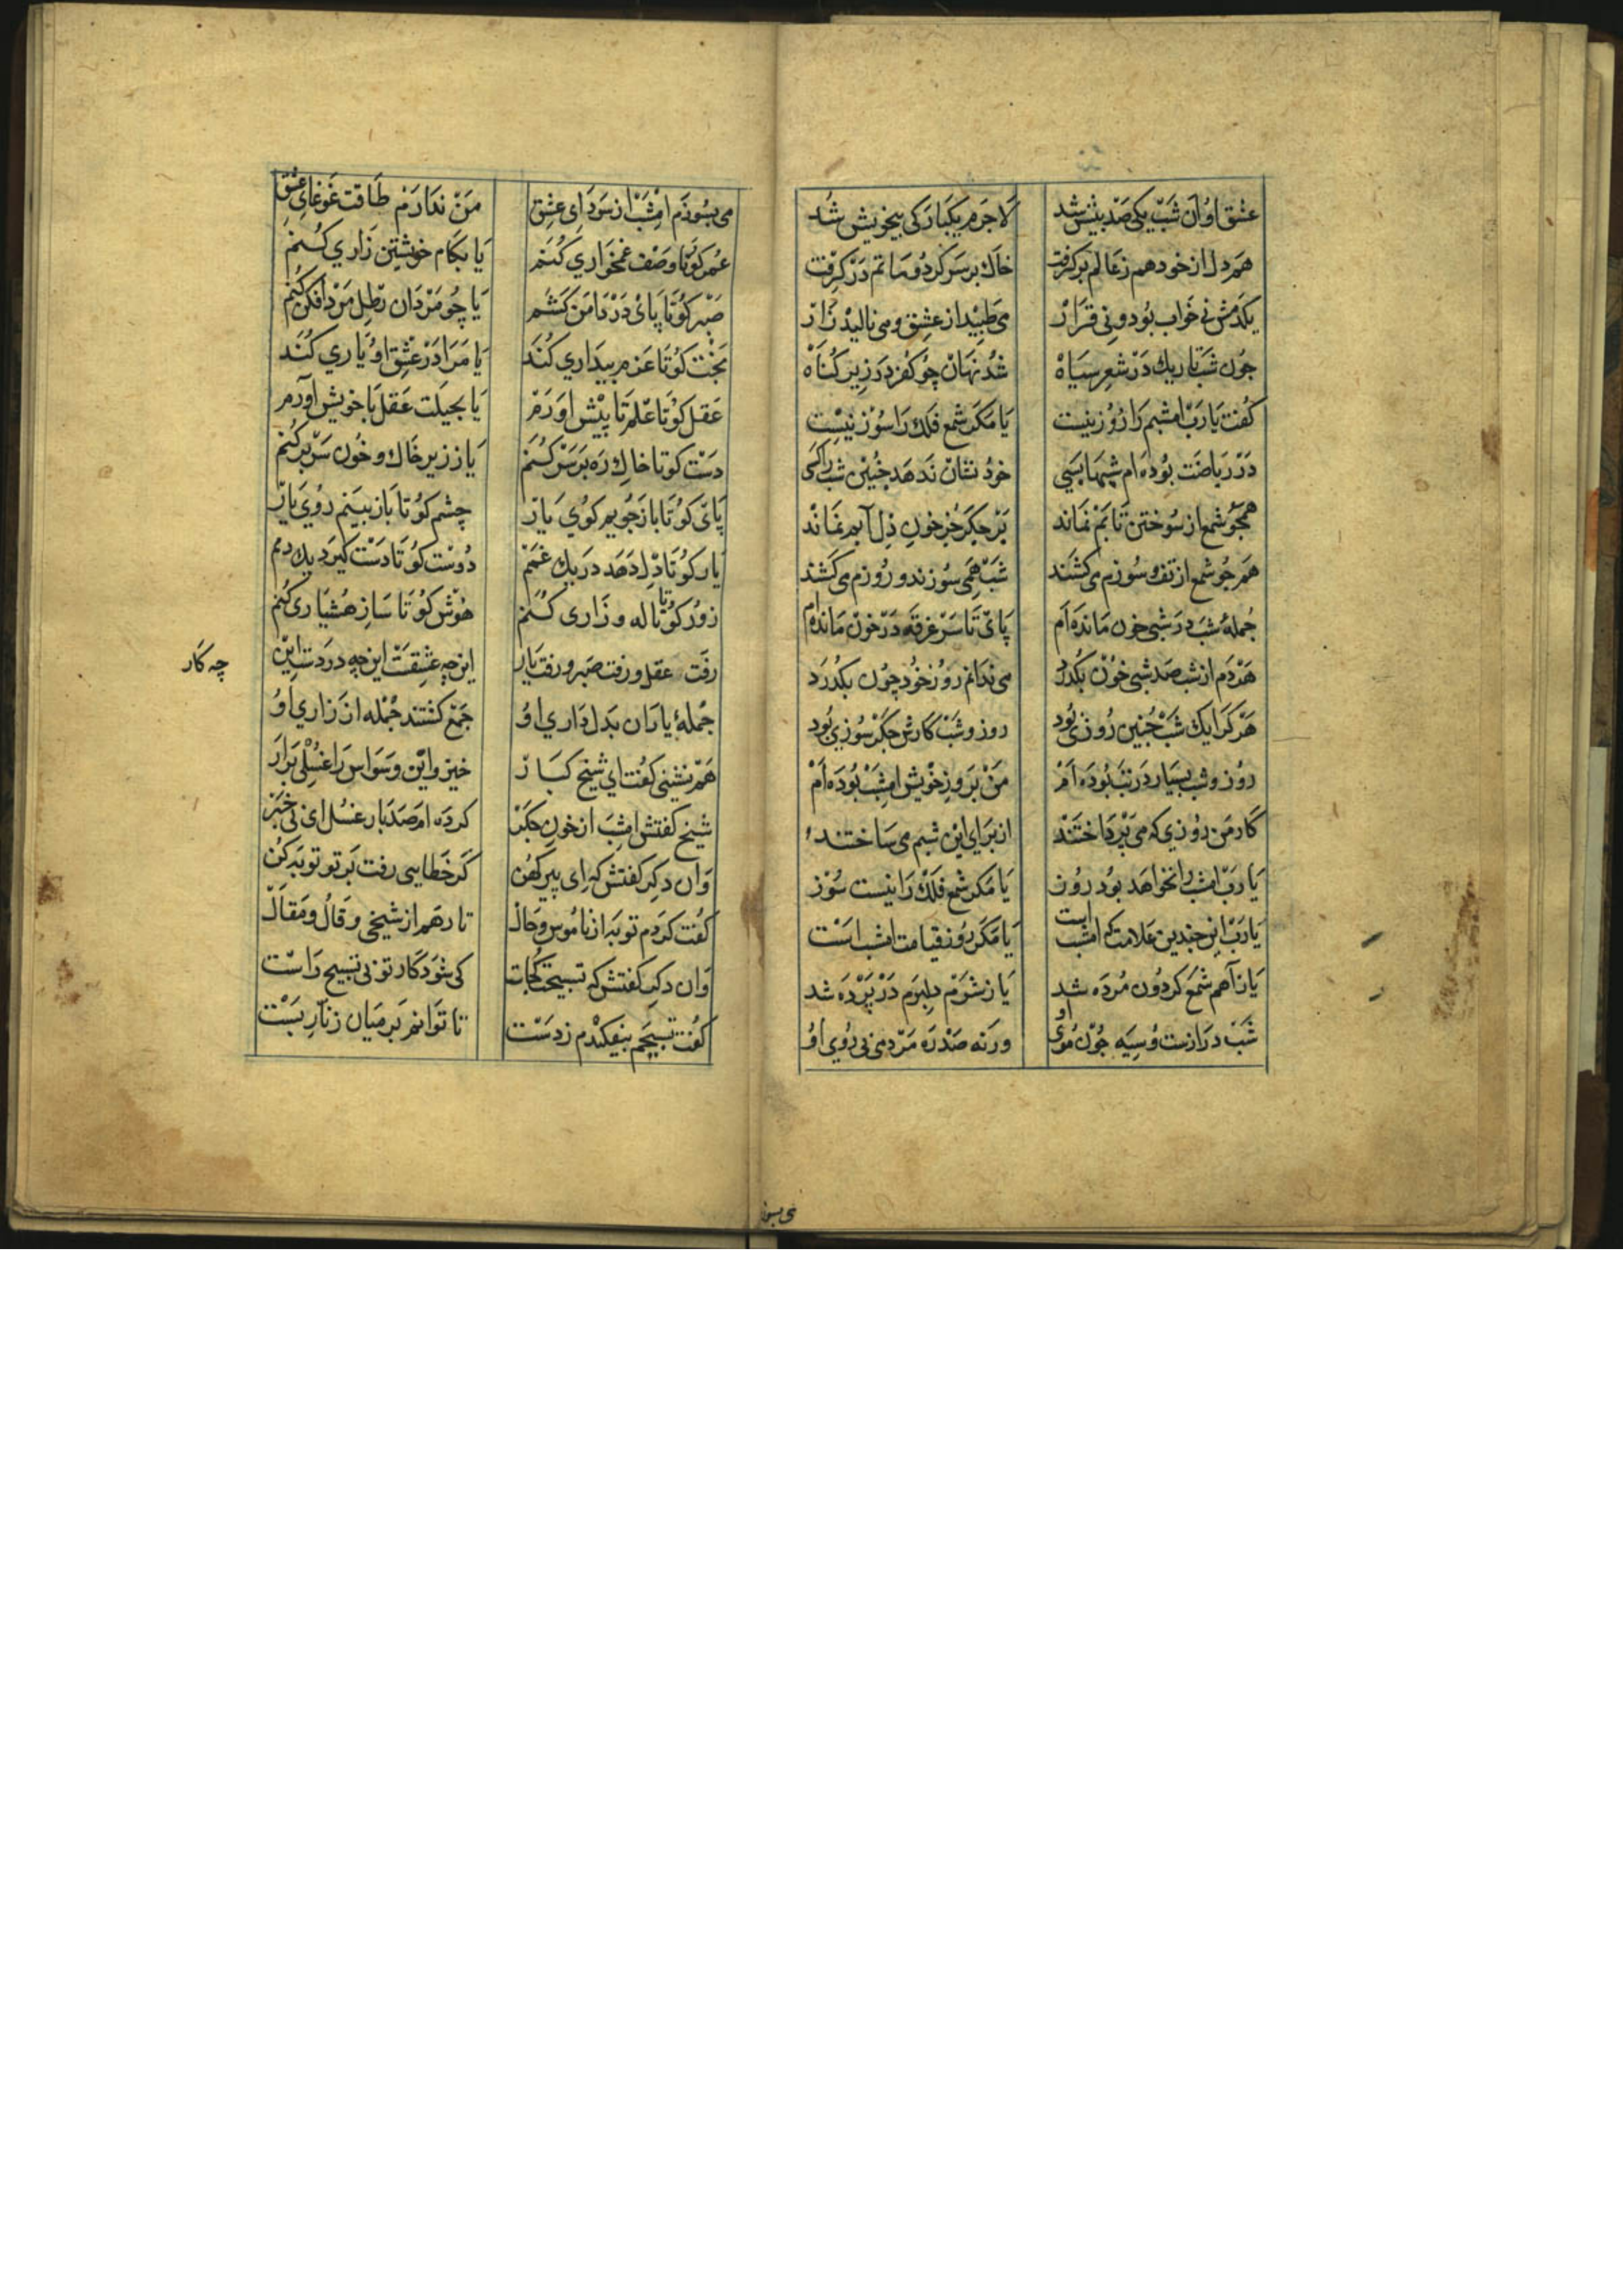 عشق او آن شب یکی صد بیش شد
لاجرم یکبارکی بیخویش شد
هم دل از خود هم ز عالم برکرفت
خاك بر سر کرد و ماتم در کرفت
یکدمش نی خواب بود و نی قرار
می طپید از عشق و می نالید زار
چون شب تاریك در شعر سیاه
شد نهان چو کفر در زیر کناه
کفت یا رب امشبم را روز نیست
یا مکر شمع فلك را سوز نیست
در ریاضت بوده ام شبها بسی
خود نشان ندهد چنین شب را کسی
همچو شمع از سوختن تابم نماند
بر جکر جز خون دل آبم نماند
همچو شمع از تف و سوزم می کشند
شب همی سوزند و روزم می کشند
جملهٔ شب در شبی خون مانده ام
پای تا سر غرقه در خون مانده ام
هر دم از شب صد شبی خون بکذرد
می ندانم روز خود چون بکذرد
هر کرا یك شب چنین روزی بود
روز و شب کارش جکر سوزی بود
روز و شب بسیار در تب بوده ام
من بروز خویش امشب بوده ام
کار من روزی که می پرداختند
از برای این شبم می ساختند
یا رب امشب را نخواهد بود روز
یا مکر شمع فلك را نیست سوز
یا رب این چندین علامت کامشب است
یا مکر روز قیامت امشب است
یا ز آهم شمع کردون مرده شد
یا ز شرم دلبرم در پرده شد
شب درازست و سیه چون موی او
ورنه صد ره مردمی بی روی او
می بسوز
می بسوزم امشب از سودای عشق
من ندارم طاقت غوغای عشق
عمر کو تا وصف غمخواری کنم
یا بکام خویشتن زاری کنم
صبر کو تا پای در دامن کشم
یا چو مردان رطل مرد افکن کشم
بخت کو تا عزم بیداری کند
یا مرا در عشق او یاری کند
عقل کو تا علم تا پیش اورم
یا بحیلت عقل با خویش آورم
دست کو تا خاك ره بر سر کنم
یا ز زیر خاك و خون سر بر کنم
پای کو تا باز جویم کوی یار
چشم کو تا باز بینم روی یار
یار کو تا دل دهد در یك غمم
دوست کو تا دست کیرد یك دمم
زور کو تا ناله و زاری کنم
هوش کو تا ساز هشیاری کنم
رفت عقل و رفت صبر و رفت یار
این چه عشقت این چه دردست این
چه کار
جملهٔ یاران بدلداری او
جمع کشتند جمله از زاری او
همنشینی کفت ای شیخ کبار
خیز و این وسواس را غسلی برار
شیخ کفتش امشب از خون جکر
کرده ام صد بار غسل ای بی خبر
وان دکر کفتش که ای پیر کهن
کر خطایی رفت بر تو توبه کن
کفت کردم توبه از ناموس و حال
تا رهم از شیخی و قال و مقال
وان دکر کفتش که تسبیحت کجات
کی شود کار تو بی تسبیح راست
کفت تسبیحم بیفکندم ز دست
تا توانم بر میان زنار بست